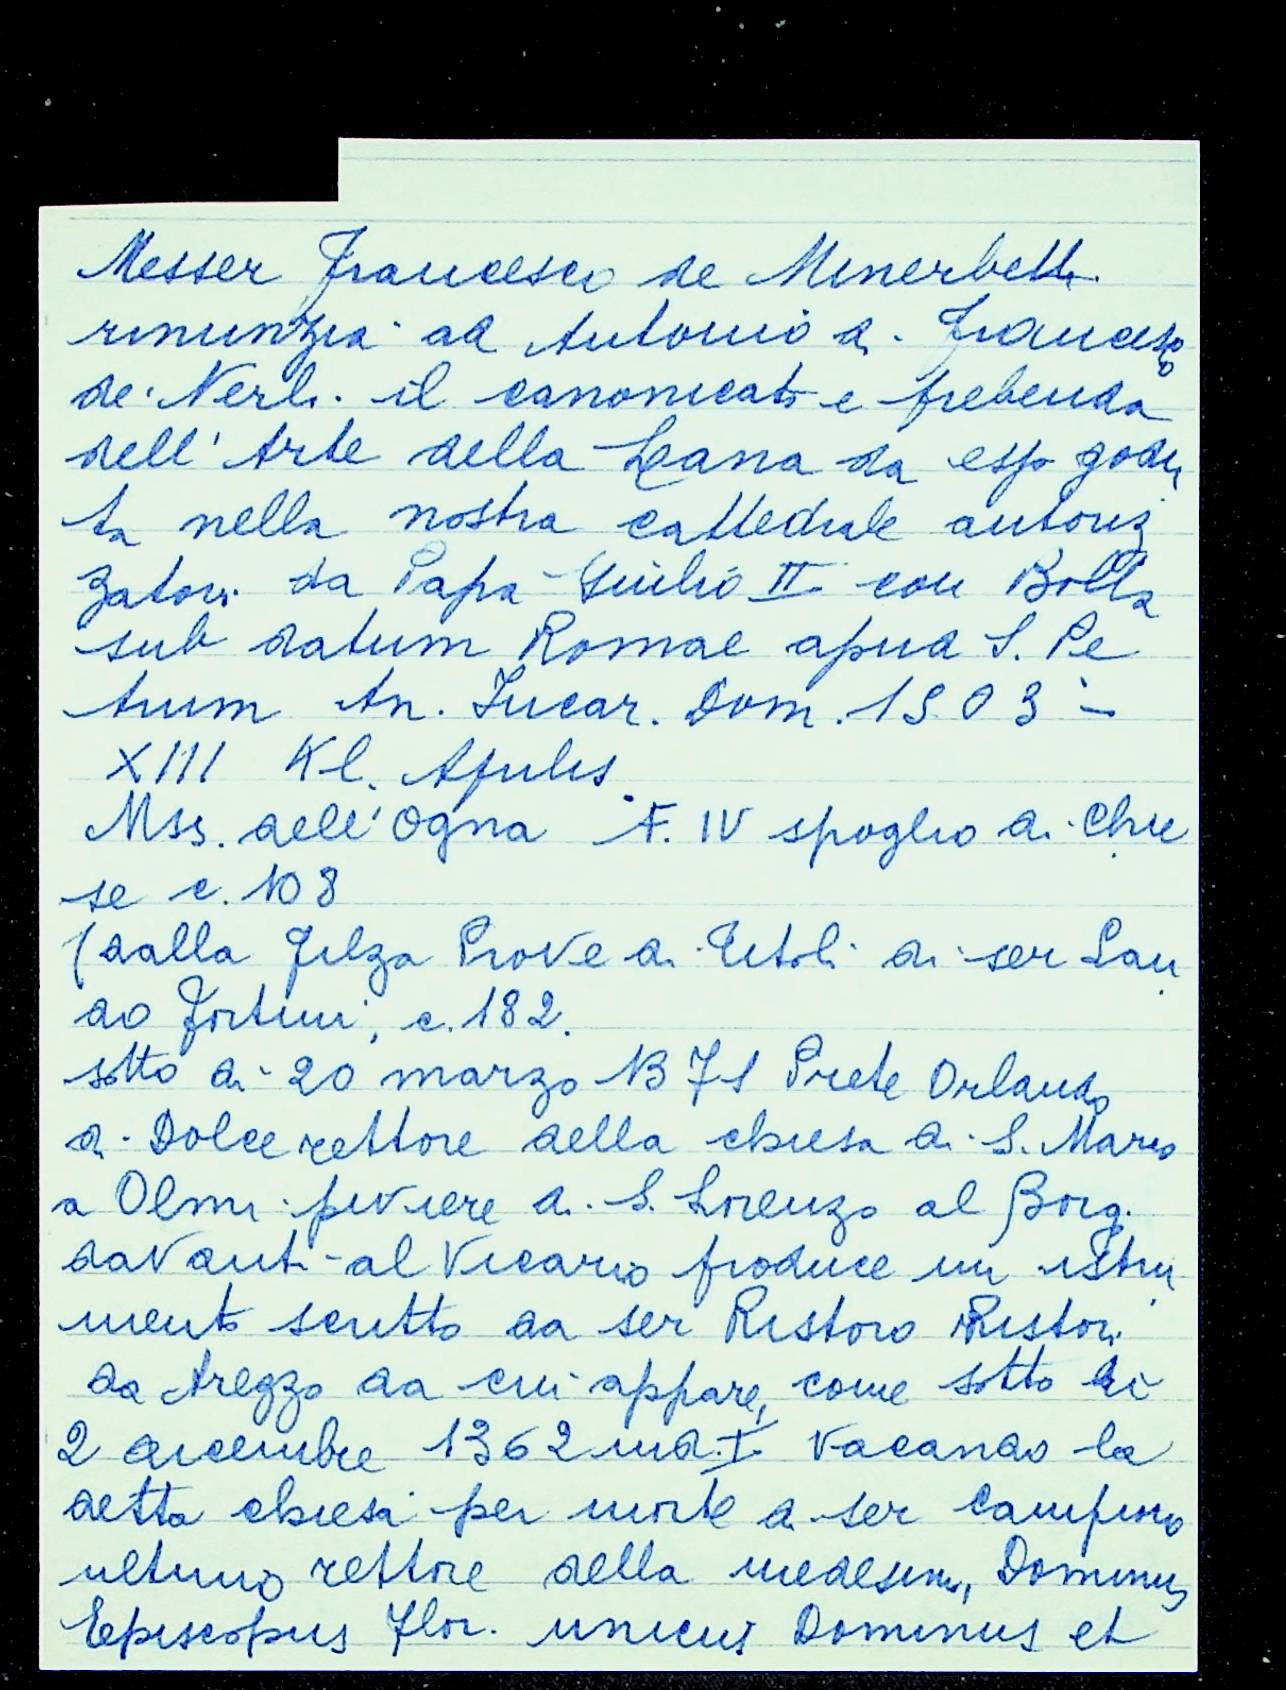 Messer Francesco de Minerbetti
rinunzia ad Antonio di Francesco
de' Nerli il canonicato e prebenda
dell'Arte della Lana da esso godu
ta nella nostra cattedrale autoriz
zatovi da Papa Giulio II con Bolla
sub datum Romae apud S. Pe
trum An. Incar. Dom. 1503 -
XIII Kl. Aprilis.
Mss. dell'Ogna F. IV spoglio di Chie
se c. 108
(dalla filza Prove di Titoli di ser Lan
do Fortini, c. 182.
sotto dì 20 marzo 1371 Prete Orlando
di Dolce rettore della chiesa di S. Mario
a Olmi piviere di S. Lorenzo al Borg.
davanti al Vicario produce un istru
mento scritto da ser Ristoro Ristori
da Arezzo da cui appare, come sotto dì
2 dicembre 1362 ind. I. vacando la
detta chiesa per morte di ser Campino
ultimo rettore della medesima, Dominus
Episcopus Flor. unicus Dominus et